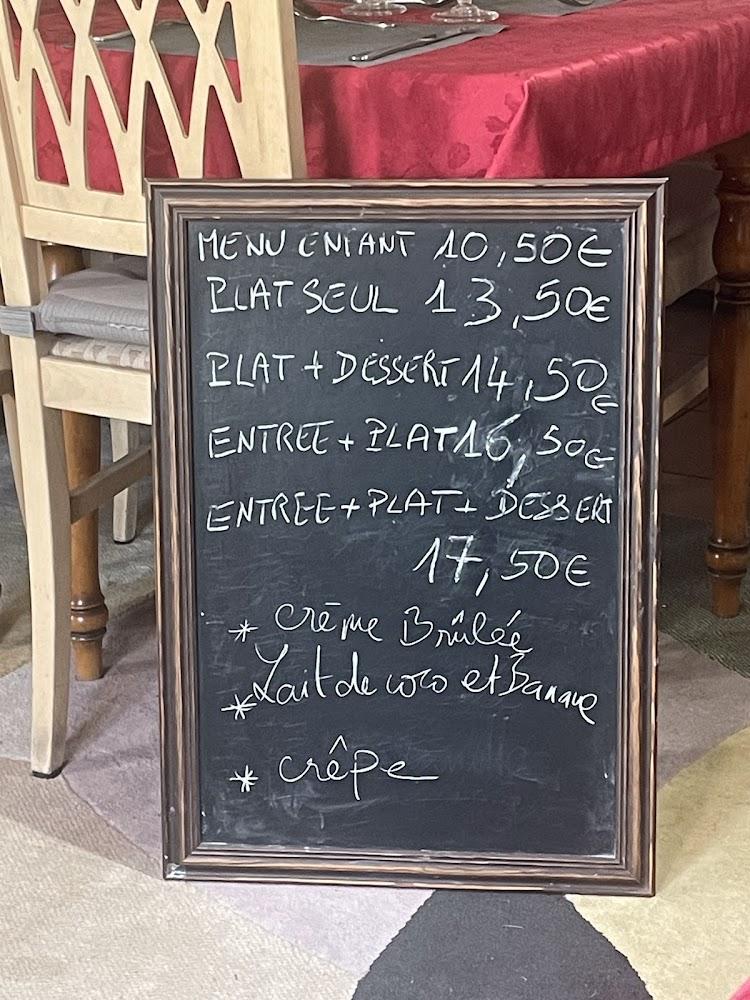 MENU ENFANT 10,50€
PLAT SEUL 13,50€
PLAT + DESSERT 14,50€
ENTREE + PLAT 16,50€
ENTREE + PLAT + DESSERT
17,50€
* Crème Brûlée
* Lait de coco et Banane
* crêpe